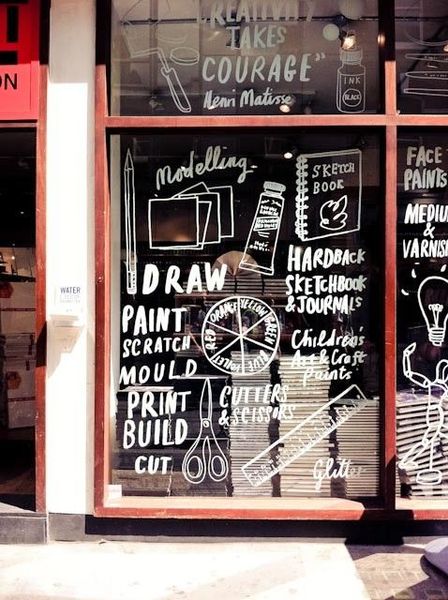 CREATIVITY
TAKES
COURAGE"
Henri Matisse
INK
BLACK
ON
Modelling
SKETCH
BOOK
DRAW
PAINT
SCRATCH
MOULD
PRINT
BUILD
CUT
HARDBACK
SKETCHBOOK
& JOURNALS
RED ORANGE YELLOW GREEN BLUE VIOLET
Children's
Art & Craft
Paints
CUTTERS
& SCISSORS
Glitter
FACE
PAINTS
MEDIUM
&
VARNISH
WATER